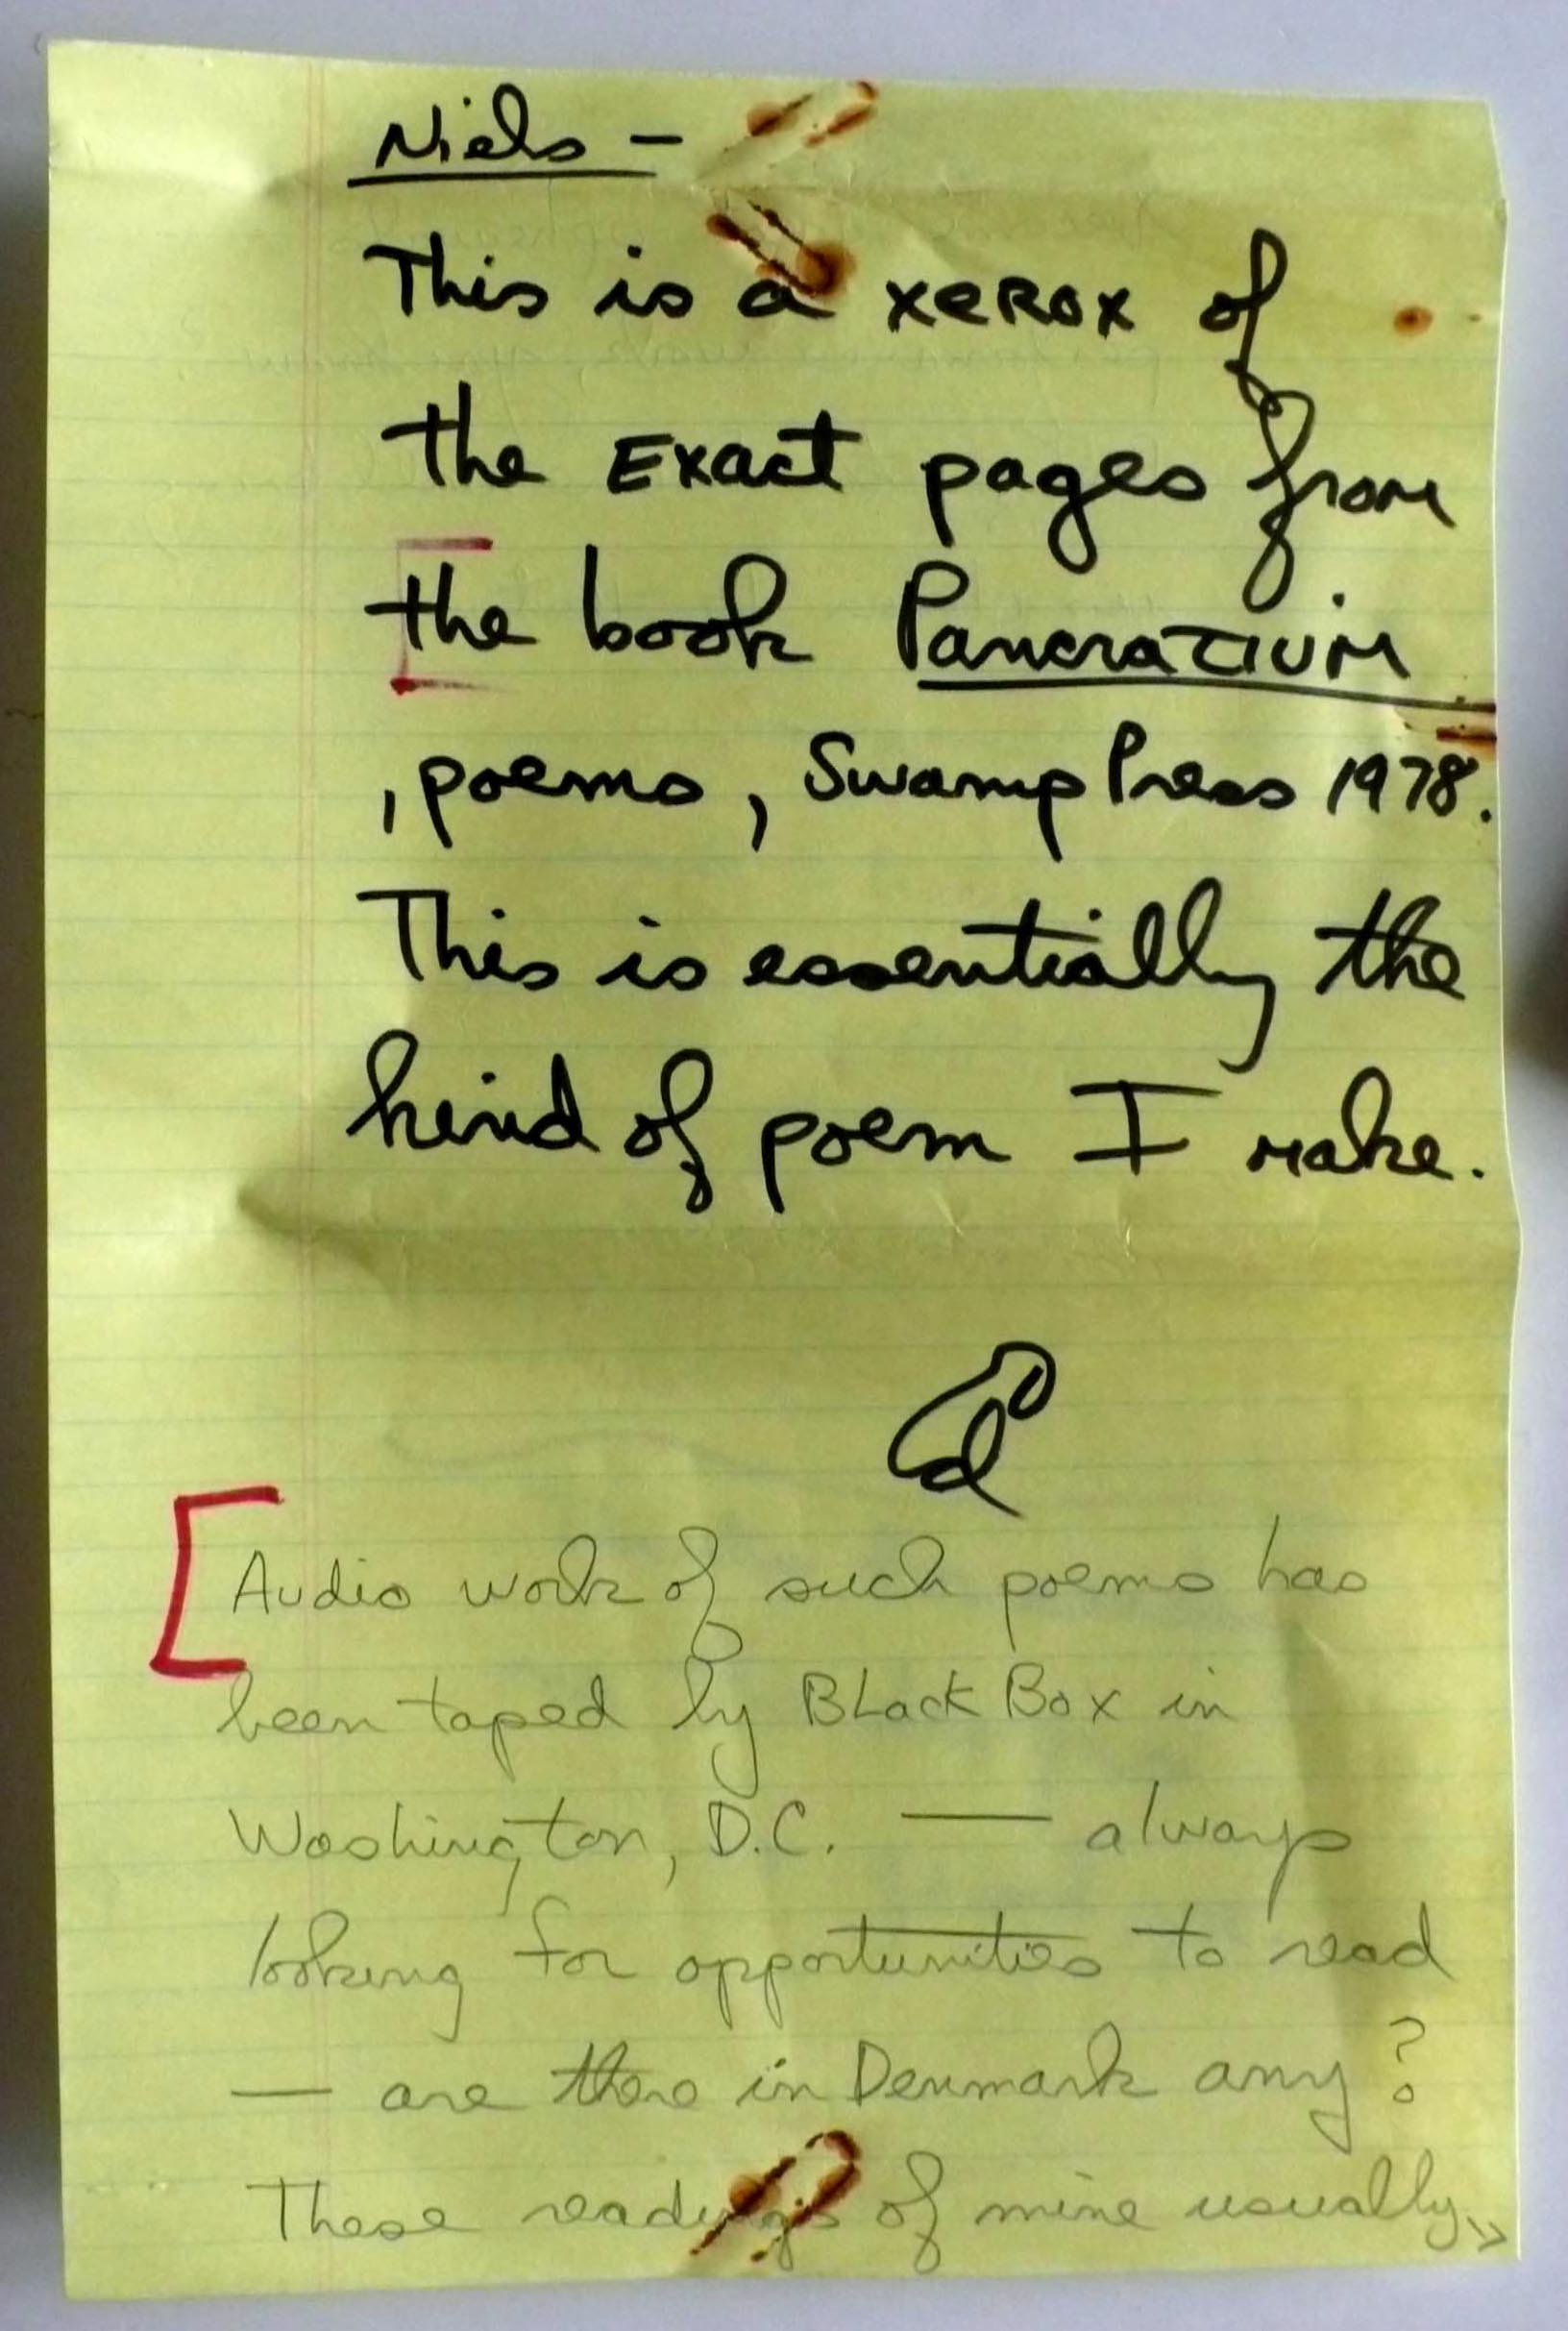 Niels —
This is a xerox of
the Exact pages from
the book Pancratium
, poems, Swamp Press 1978.
This is essentially the
kind of poem I make.
Ed
Audio work of such poems has
been taped by Black Box in
Washington, D.C. — always
looking for opportunities to read
— are there in Denmark any?
These readings of mine usually